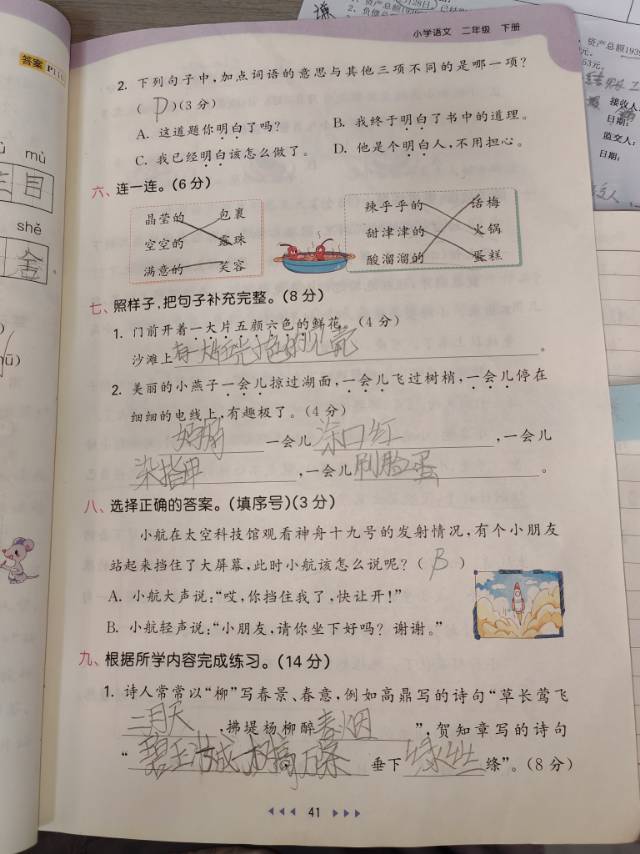 小学语文 二年级 下册
答案 P11
2. 下列句子中,加点词语的意思与其他三项不同的是哪一项?
( D )(3分)
A. 这道题你明白了吗? B. 我终于明白了书中的道理。
C. 我已经明白该怎么做了。 D. 他是个明白人,不用担心。
mù
目
shě
舍
六、连一连。(6分)
晶莹的 包裹 辣乎乎的 话梅
空空的 露珠 甜津津的 火锅
满意的 笑容 酸溜溜的 蛋糕
七、照样子,把句子补充完整。(8分)
1. 门前开着一大片五颜六色的鲜花。(4分)
沙滩上有一大片五光十色的贝壳。
2. 美丽的小燕子一会儿掠过湖面,一会儿飞过树梢,一会儿停在
细细的电线上,有趣极了。(4分)
妈妈一会儿涂口红,一会儿
染指甲,一会儿刷脸蛋。
八、选择正确的答案。(填序号)(3分)
小航在太空科技馆观看神舟十九号的发射情况,有个小朋友
站起来挡住了大屏幕,此时小航该怎么说呢?( B )
A. 小航大声说:“哎,你挡住我了,快让开!”
B. 小航轻声说:“小朋友,请你坐下好吗?谢谢。”
九、根据所学内容完成练习。(14分)
1. 诗人常常以“柳”写春景、春意,例如高鼎写的诗句“草长莺飞
二月天,拂堤杨柳醉春烟”,贺知章写的诗句
“碧玉妆成一树高,万条垂下绿丝绦”。(8分)
41
资产总额
接收人
日期:
监交人:
日期: